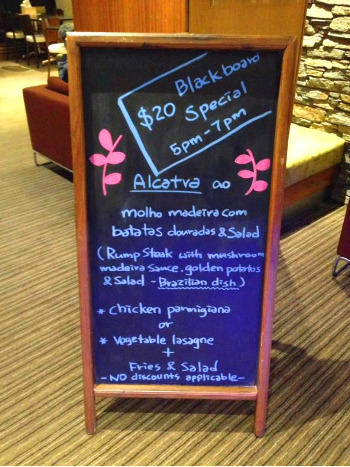 Blackboard
$20 Special
5pm - 7pm
Alcatra ao
molho madeira com
batatas douradas & Salad
(Rump Steak with mushroom
madeira sauce, golden potatos
& Salad - Brazilian dish)
* Chicken parmigiana
or
* Vegetable lasagne
+
Fries & Salad
- NO discounts applicable -